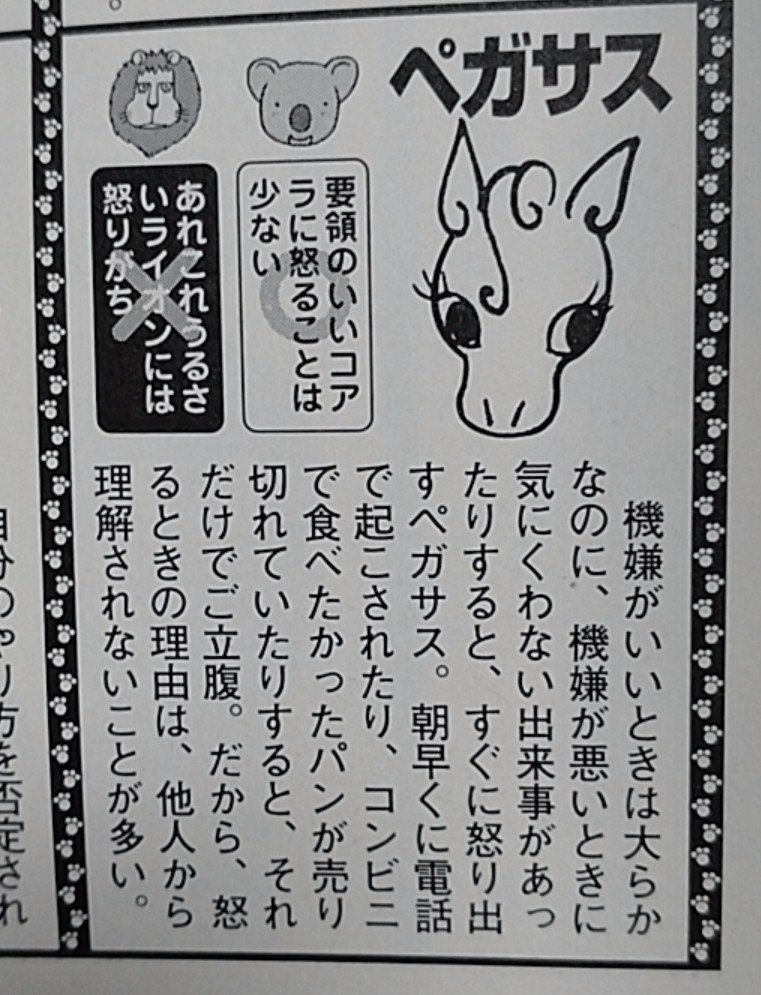 ペガサス
要領のいいコア
ラに怒ることは
少ない
あれこれうるさ
いライオンには
怒りがち
機嫌がいいときは大らか
なのに、機嫌が悪いときに
気にくわない出来事があっ
たりすると、すぐに怒り出
すペガサス。朝早くに電話
で起こされたり、コンビニ
で食べたかったパンが売り
切れていたりすると、それ
だけでご立腹。だから、怒
るときの理由は、他人から
理解されないことが多い。
自分のやり方を否定され